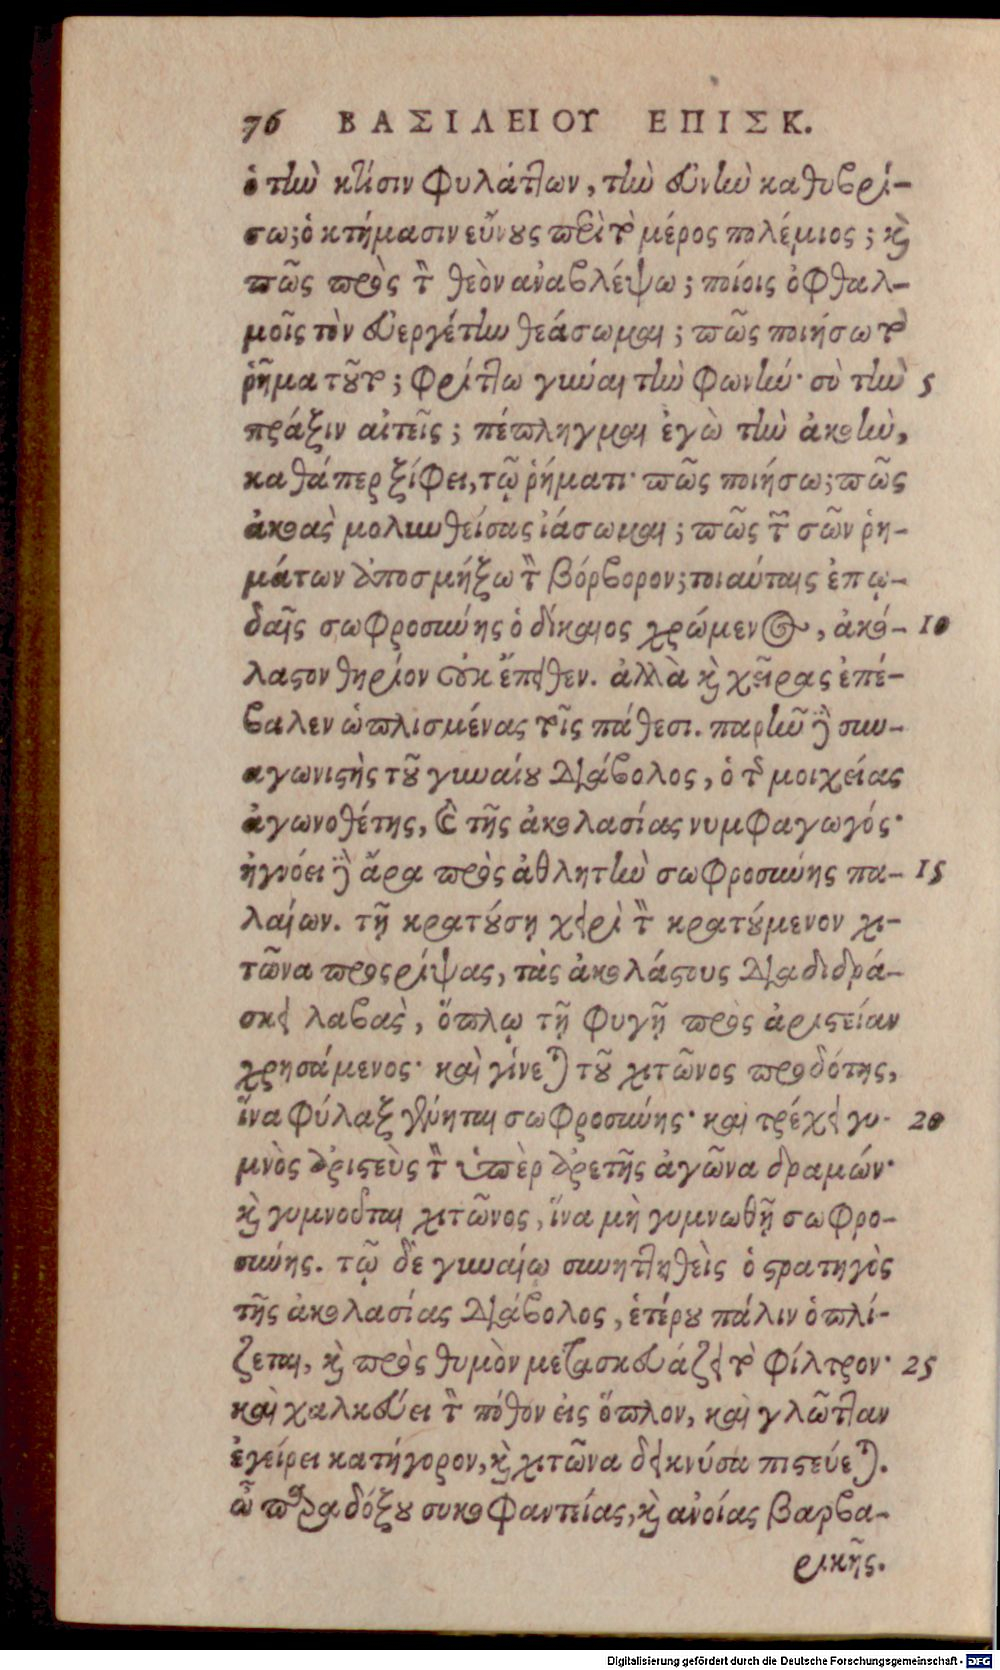 76 ΒΑΣΙΛΕΙΟΥ ΕΠΙΣΚ.
ὁ τὴν κτίσιν φυλάττων, τὴν εὐνὴν καθυβρί-
σω; ὁ κτήμασιν εὔνους περὶ τὸ μέρος πολέμιος; καὶ
πῶς πρὸς τὸν θεὸν ἀναβλέψω; ποίοις ὀφθαλ-
μοῖς τὸν εὐεργέτην θεάσωμαι; πῶς ποιήσω τὸ
ῥῆμα τοῦτο; φρίττω γύναι τὴν φωνήν· σὺ τὴν 5
πράξιν αἰτεῖς; πέπληγμαι ἐγὼ τὴν ἀκοὴν,
καθάπερ ξίφει, τῷ ῥήματι· πῶς ποιήσω; πῶς
ἀκοὰς μολυνθείσας ἰάσωμαι; πῶς τῶν σῶν ῥη-
μάτων ἀποσμήξω τὸν βόρβορον; τοιαύταις ἐπῳ-
δαῖς σωφροσύνης ὁ δίκαιος χρώμενος, ἀκό- 10
λαστον θηρίον οὐκ ἔπειθεν. ἀλλὰ καὶ χεῖρας ἐπέ-
βαλεν ὡπλισμένας τοῖς πάθεσι. παρῆν γὰρ συν-
αγωνιστὴς τοῦ γυναίου διάβολος, ὁ τῆς μοιχείας
ἀγωνοθέτης, καὶ τῆς ἀκολασίας νυμφαγωγός·
ἠγνόει γὰρ ἄρα πρὸς ἀθλητὴν σωφροσύνης πα- 15
λαίων. τῇ κρατούσῃ χειρὶ τὸν κρατούμενον χι-
τῶνα προσρίψας, τὰς ἀκολάστους διαδιδρά-
σκει λαβὰς, ὅπλῳ τῇ φυγῇ πρὸς ἀριστείαν
χρησάμενος· καὶ γίνεται τοῦ χιτῶνος προδότης,
ἵνα φύλαξ γένηται σωφροσύνης· καὶ τρέχει γυ- 20
μνὸς ἀριστεὺς τὸν ὑπὲρ ἀρετῆς ἀγῶνα δραμών·
καὶ γυμνοῦται χιτῶνος, ἵνα μὴ γυμνωθῇ σωφρο-
σύνης. τῷ δὲ γυναίῳ συνηττηθεὶς ὁ στρατηγὸς
τῆς ἀκολασίας διάβολος, ἑτέρου πάλιν ὁπλί-
ζεται, καὶ πρὸς θυμὸν μετασκευάζει τὸ φίλτρον· 25
καὶ χαλκεύει τὸν πόθον εἰς ὅπλον, καὶ γλῶτταν
ἐγείρει κατήγορον, καὶ χιτῶνα δεικνύσα πιστεύεται.
ὢ παραδόξου συκοφαντείας, καὶ ἀνοίας βαρβα-
ρικῆς.
Digitalisierung gefördert durch die Deutsche Forschungsgemeinschaft - DFG